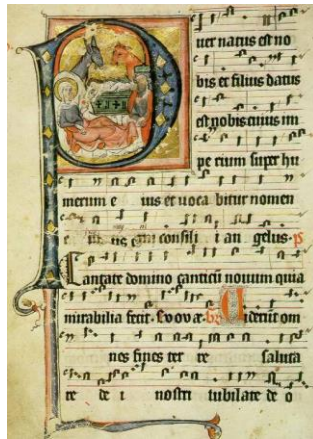 Puer natus est no
bis et filius datus
est nobis cuius im
pe rium super hu
merum e ius et uoca bitur nomen
e gni consili i an gelus. ps
Cantate domino canticū nouum quia
mirabilia fecit. Euouae. Uiderūt om
nes fines ter re saluta
re de i nostri iubilate de o